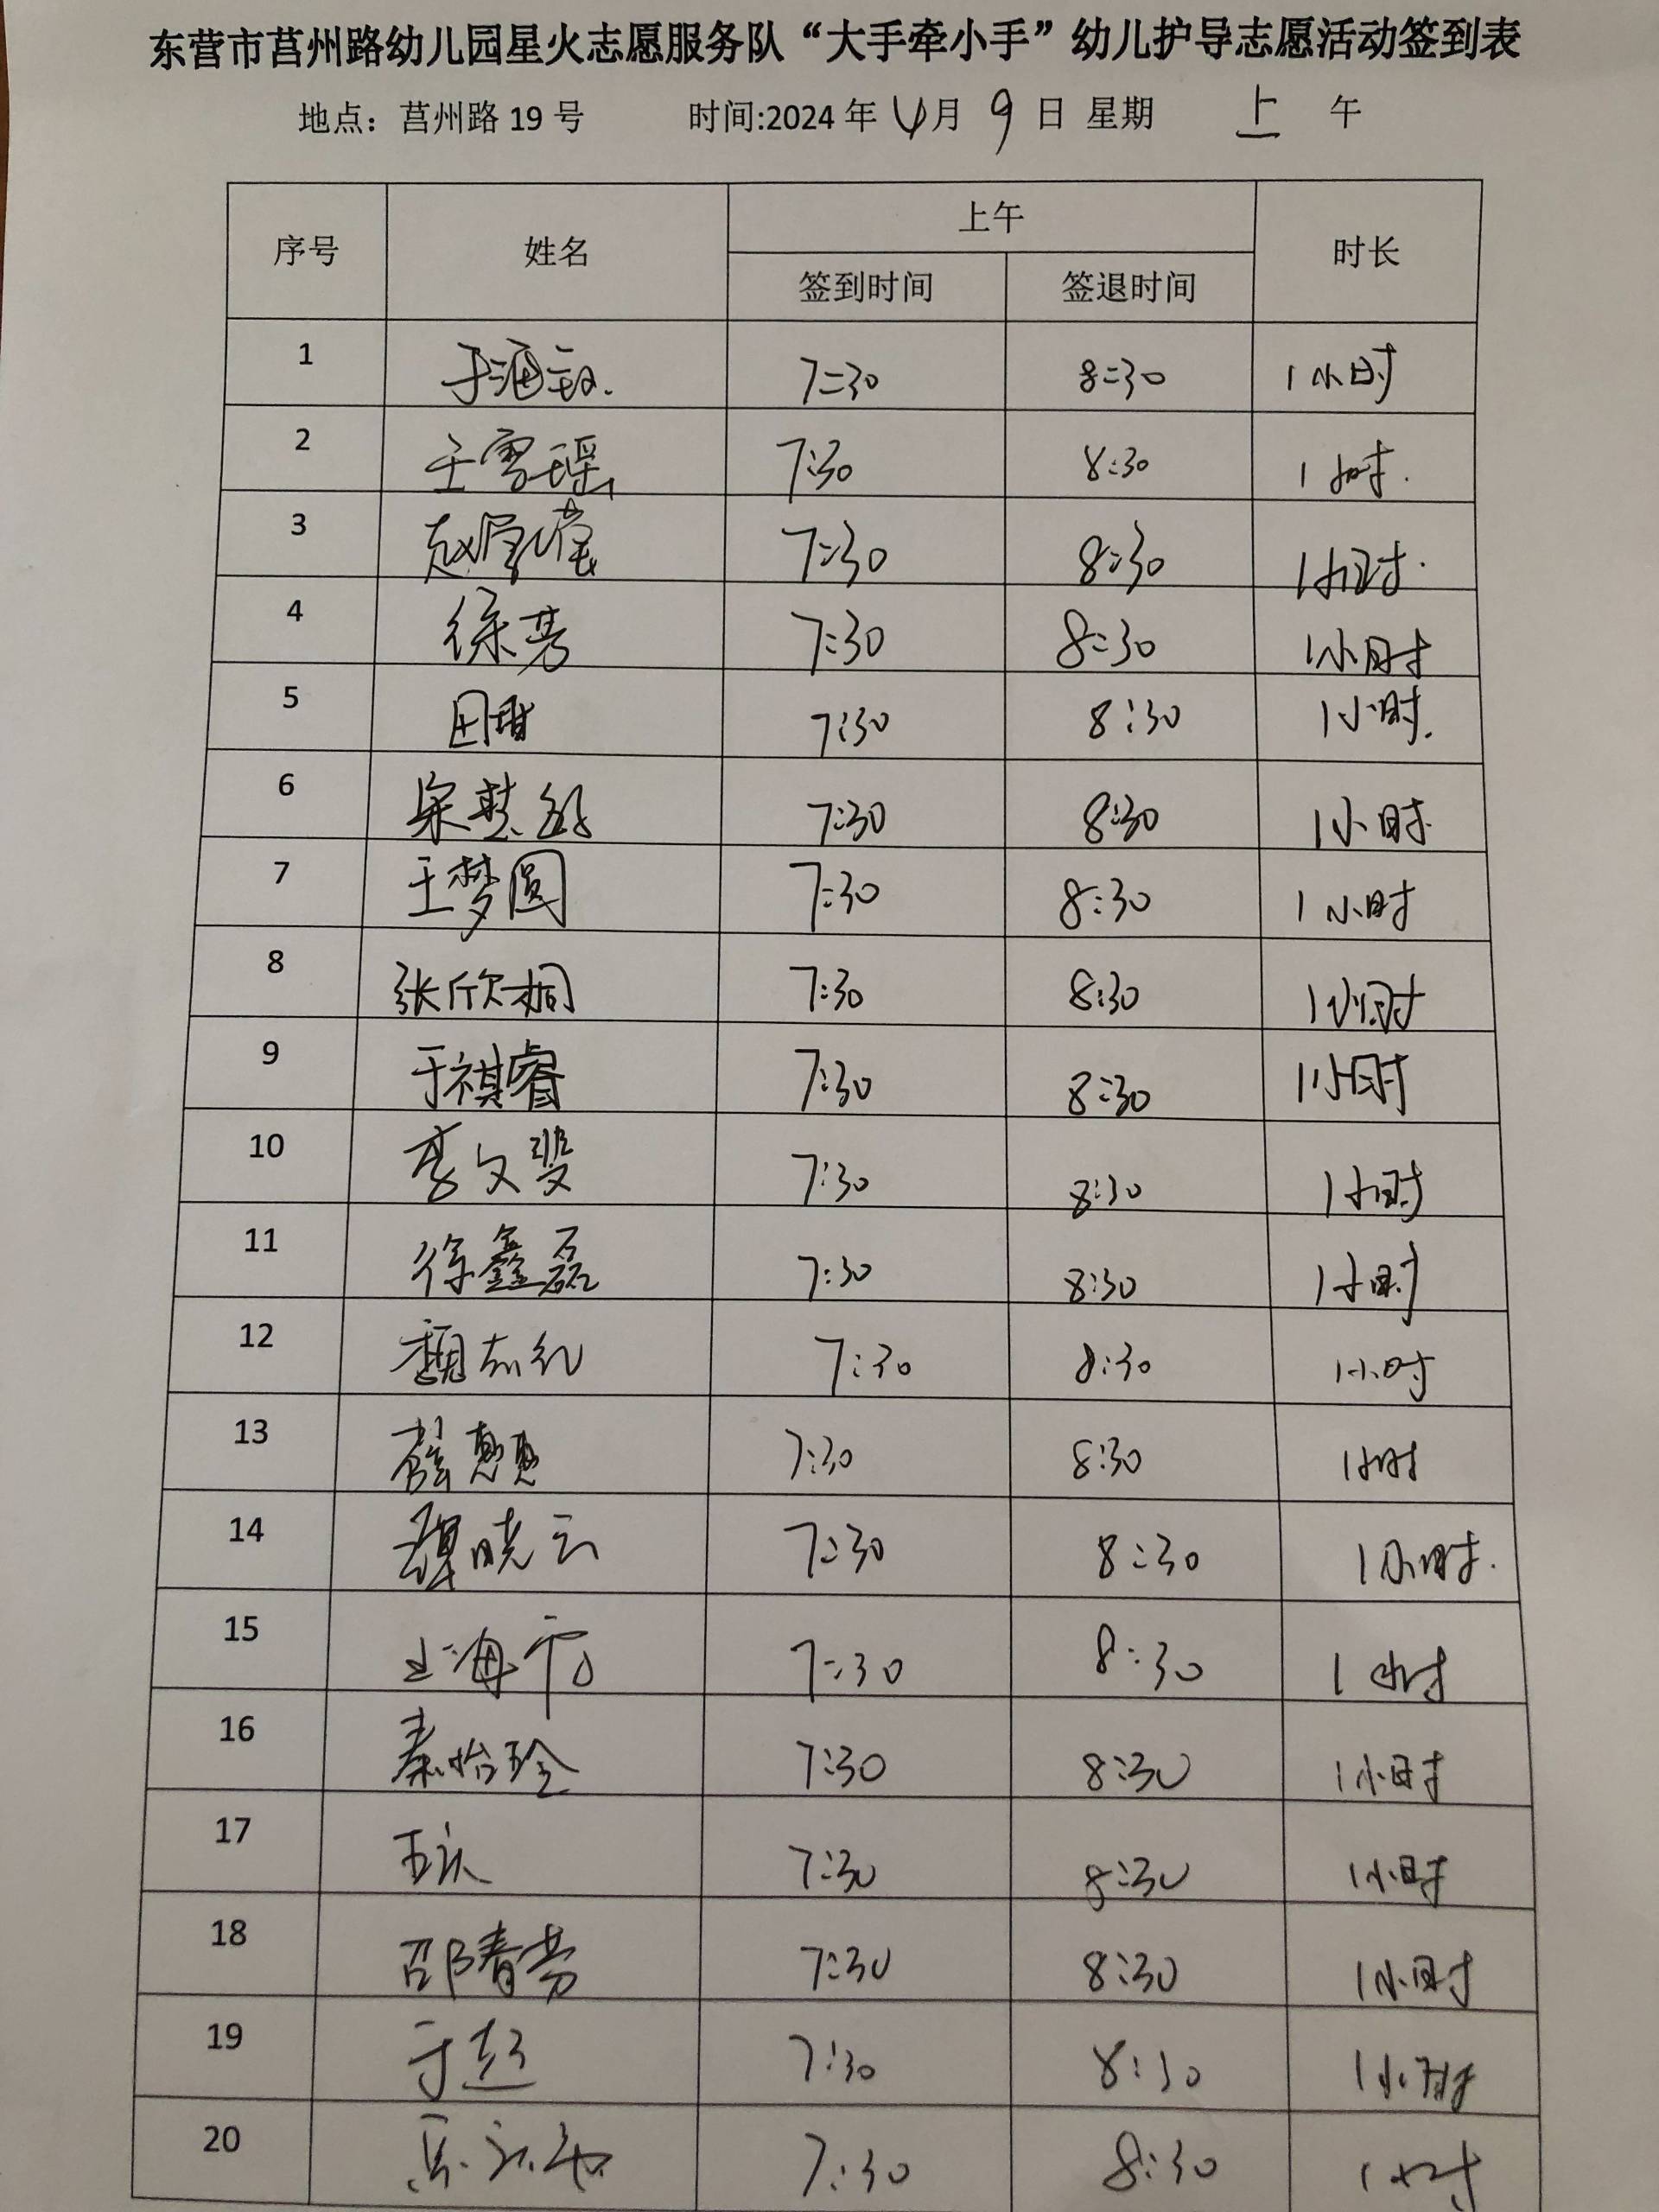 东营市莒州路幼儿园星火志愿服务队“大手牵小手”幼儿护导志愿活动签到表
地点：莒州路 19 号 时间:2024 年 4 月 9 日 星期 上 午
序号 姓名 上午 时长
签到时间 签退时间
1 于 7:30 8:30 1小时
2 王雪瑶 7:30 8:30 1小时.
3 赵 7:30 8:30 1小时.
4 徐芳 7:30 8:30 1小时
5 田甜 7:30 8:30 1小时.
6 7:30 8:30 1小时.
7 王梦圆 7:30 8:30 1小时
8 张欣桐 7:30 8:30 1小时
9 于祺睿 7:30 8:30 1小时
10 李文斐 7:30 8:30 1小时
11 徐鑫磊 7:30 8:30 1小时
12 魏志红 7:30 8:30 1小时
13 薛惠惠 7:30 8:30 1小时
14 魏晓云 7:30 8:30 1小时.
15 海 7:30 8:30 1小时
16 秦怡玲 7:30 8:30 1小时
17 7:30 8:30 1小时
18 邵春芳 7:30 8:30 1小时
19 于超 7:30 8:30 1小时
20 7:30 8:30 1小时